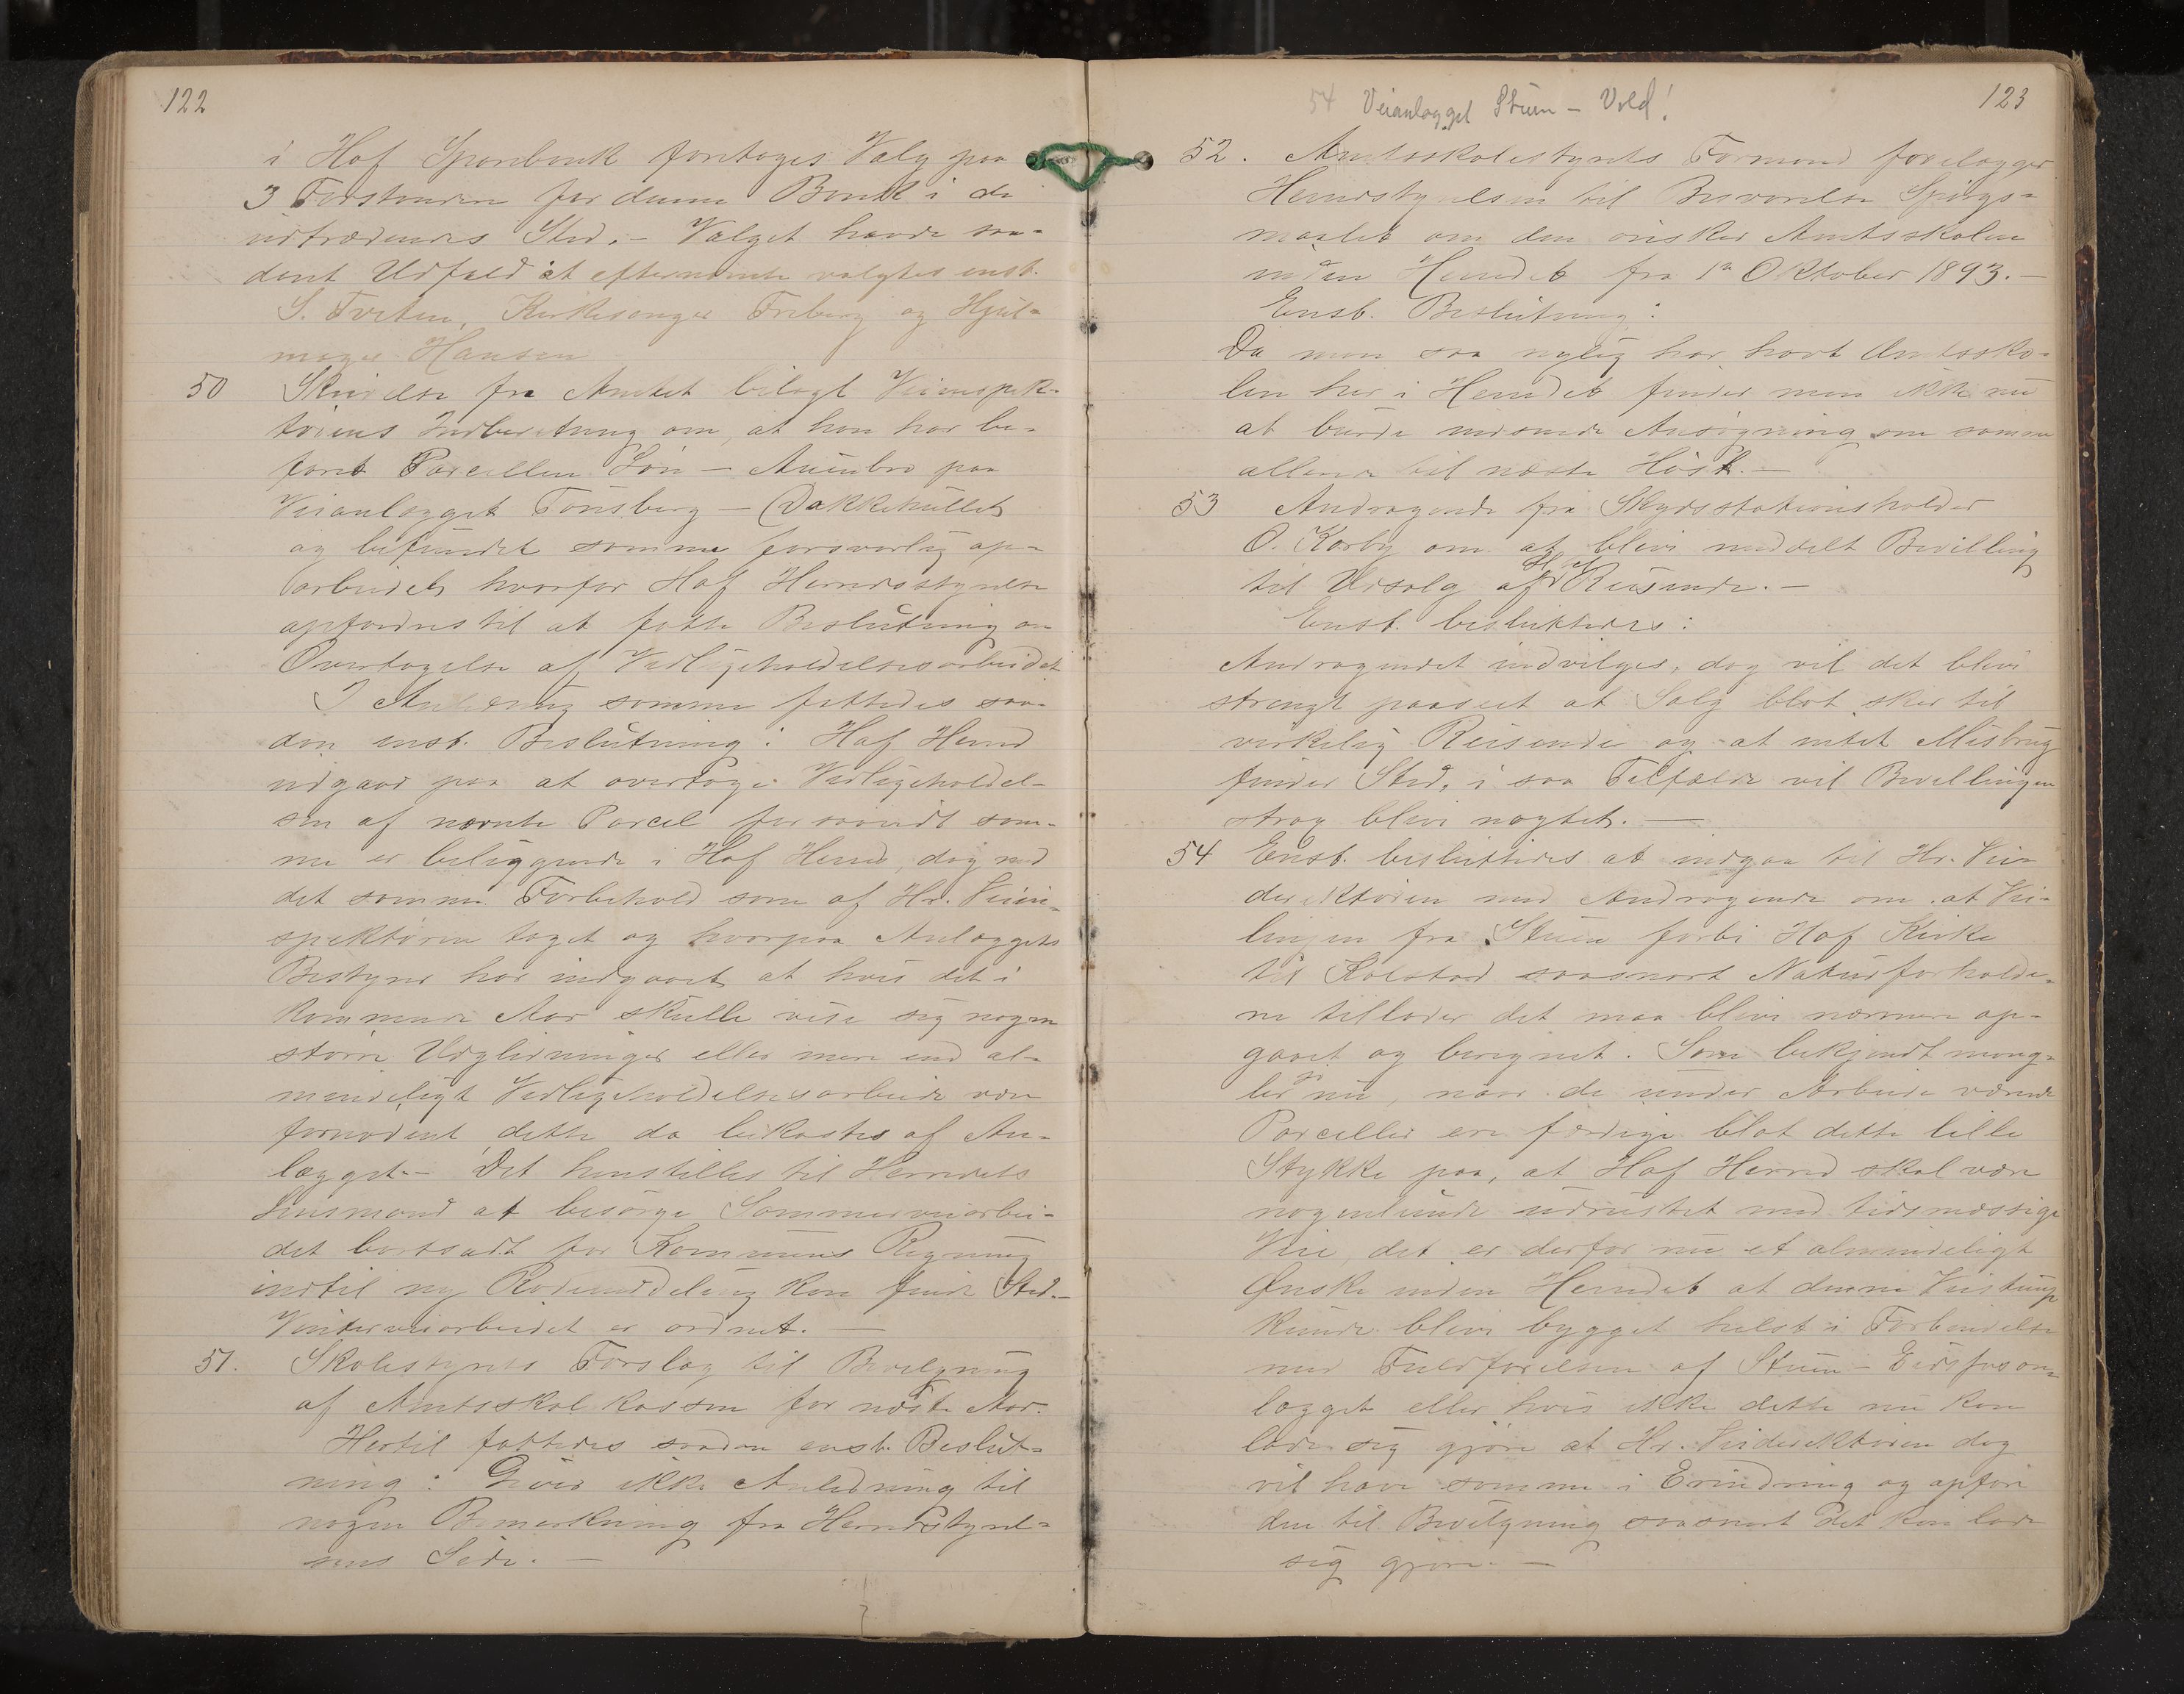 122
i Hof Sparebank foretoges Valg paa
3 Forstandere for denne Bank i de
udtrædendes Sted. – Valget havde saa-
dant Udfald at efternævnte valgtes enst.
S. Tveten, Kirkesanger Freberg og Hjul-
mager Hansen
50 Skrivelse fra Amtet bilagt Veiinspek-
törens Indberetning om, at han har be-
faret Parcellen Sön – Auenbro paa
Veianlægget Tönsberg – Dakkehullet
og befundet samme forsvarlig op-
arbeidet hvorfor Hof Herredsstyrelse
opfordres til at fatte Beslutning om
Overtagelse af Vedligeholdelsesarbeidet
I Anledning samme fattedes saa-
dan enst. Beslutning: Hof Herred
indgaar paa at overtage Vedligeholdel-
sen af nævnte Parcel forsaavidt sam-
me er beliggende i Hof Herred, dog med
det samme Forbehold som af Hr. Veiin-
spektören taget og hvorpaa Anlæggets
Bestyrer har indgaaet at hvis det i
kommende Aar skulle vise sig nogen
større Udglidninger eller mere end al-
mindeligt Vedligeholdelsesarbeide være
fornødent dette da bekostes af An-
lægget. – Det henstilles til Herredets
Lensmand at besørge Sommerveiarbei-
det bortsadt for Kommunens Regning
indtil ny Rodeinddeling kan finde Sted. –
Vinterveiarbeidet er ordnet. –
51. Skolestyrets Forslag til Bevilgning
af Amtsskolekassen for næste Aar.
Hertil fattedes saadan enst. Beslut-
ning: Giver ikke Anledning til
nogen Bemerkning fra Herredsstyrel-
sens Side. –
54 Veianlægget Stuen – Vold!
123
52. Amtsskolestyrets Formand forelægger
Herredsstyrelsen til Besvarelse Spörgs-
maalet om den önsker Amtsskolen
inden Herredet fra 1ste Oktober 1893. –
Enst. Beslutning:
Da man saa nylig har havt Amtssko-
len her i Herredet finder man ikke nu
at burde indsende Ansögning om samme
allerede til næste Höst. –
53 Andragende fra Skydsstationsholder
O. Korby om at blive meddelt Bevilling
til Udsalg af Öl til Reisende. –
Enst. besluttedes:
Andragendet indvilges, dog vil det blive
strengt paaseet at Salg blot sker til
virkelig Reisende og at intet Misbrug
finder Sted, i saa Tilfælde vil Bevillingen
strax blive nægtet. –
54 Enst. besluttedes at indgaa til Hr. Vei-
direktören med Andragende om at Vei-
linjen fra Stuen forbi Hof Kirke
til Kolstad saasnart Naturforholde-
ne tillader det maa blive nærmere op-
gaaet og beregnet. Som bekjendt mang-
ler jo nu, naar de under Arbeide værende
Parceller ere færdige blot dette lille
Stykke paa, at Hof Herred skal være
nogenlunde udrustet med tidsmæssige
Veie, det er derfor nu et almindeligt
Ønske inden Herredet at denne Veistump
kunde blive bygget helst i Forbindelse
med Fuldførelsen af Stuen – Eidsfosan-
lægget eller hvis ikke dette nu kan
lade sig gjöre at Hr. Veidirektören dog
vil have samme i Erindring og opføre
den til Bevilgning saasnart det kan lade
sig gjöre. –